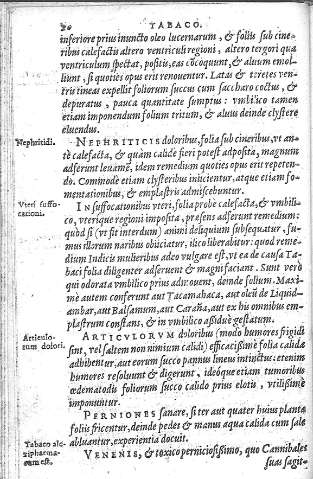 20 TABACO.
inferiore prius inuncto oleo lucernarum, & foliis sub cine-
ribus calefactis altero ventriculi regioni, altero tergori qua
ventriculum spectat, positis, eas cōcoquunt, & aluum emol-
liunt, si quoties opus erit renouentur. Latas & teretes ven-
tris tineas expellit foliorum succus cum saccharo coctus, &
depuratus, pauca quantitate sumptus: vmbilico tamen
etiam imponendum folium tritum, & aluus deinde clystere
eluendus.
Nephritidi.
NEPHRITICIS doloribus, folia sub cineribus, vt an-
tè calefacta, & quàm calidè fieri potest adposita, magnum
adferunt leuamē, idem remedium quoties opus erit repeten-
do. Commodè etiam clysteribus iniicientur, atque etiam fo-
mentationibus, & emplastris admiscebuntur.
Vteri suffo-
cationi.
IN suffocationibus vteri, folia probè calefacta, & vmbili-
co, vterique regioni imposita, præsens adferunt remedium:
quòd si (vt fit interdum) animi deliquium subsequatur, fu-
mus illorum naribus obiiciatur, ilico liberabitur: quod reme-
dium Indicis mulieribus adeo vulgare est, vt ea de causa Ta-
baci folia diligenter adseruent & magnifaciant. Sunt verò
qui odorata vmbilico prius admouent, deinde folium. Maxi-
mè autem conferunt aut Tacamahaca, aut oleū de Liquid-
ambar, aut Balsamum, aut Caraña, aut ex his omnibus em-
plastrum constans, & in vmbilico aßiduè gestatum.
Articulo-
rum dolori.
ARTICVLORVM doloribus (modo humores frigidi
sint, vel saltem non nimium calidi) efficacißimè folia calida
adhibentur, aut eorum succo pannus lineus intinctus: etenim
humores resoluunt & digerunt, ideóque etiam tumoribus
œdematodis foliorum succo calido prius elotis, vtilißimè
imponuntur.
PERNIONES sanare, si ter aut quater huius plantæ
foliis fricentur, deinde pedes & manus aqua calida cum sale
abluantur, experientia docuit.
Tabaco ale-
xipharma-
cum est.
VENENIS, & toxico perniciosißimo, quo Cannibales
suas sagit-